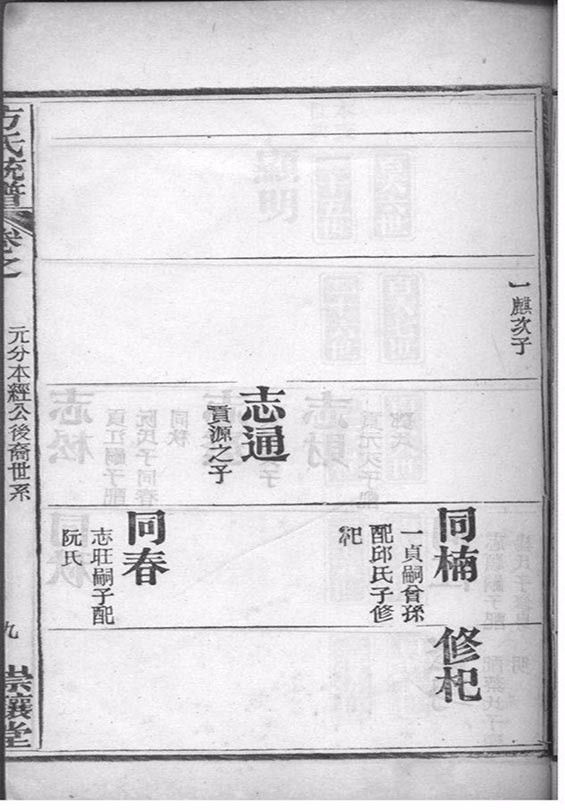 一麒次子
同楠
一貞嗣曾孫
配邱氏子修
杞
修杞
志通
貢源之子
同春
志旺嗣子配
阮氏
方氏統譜
卷之
元分本經公後裔世系
九
崇讓堂